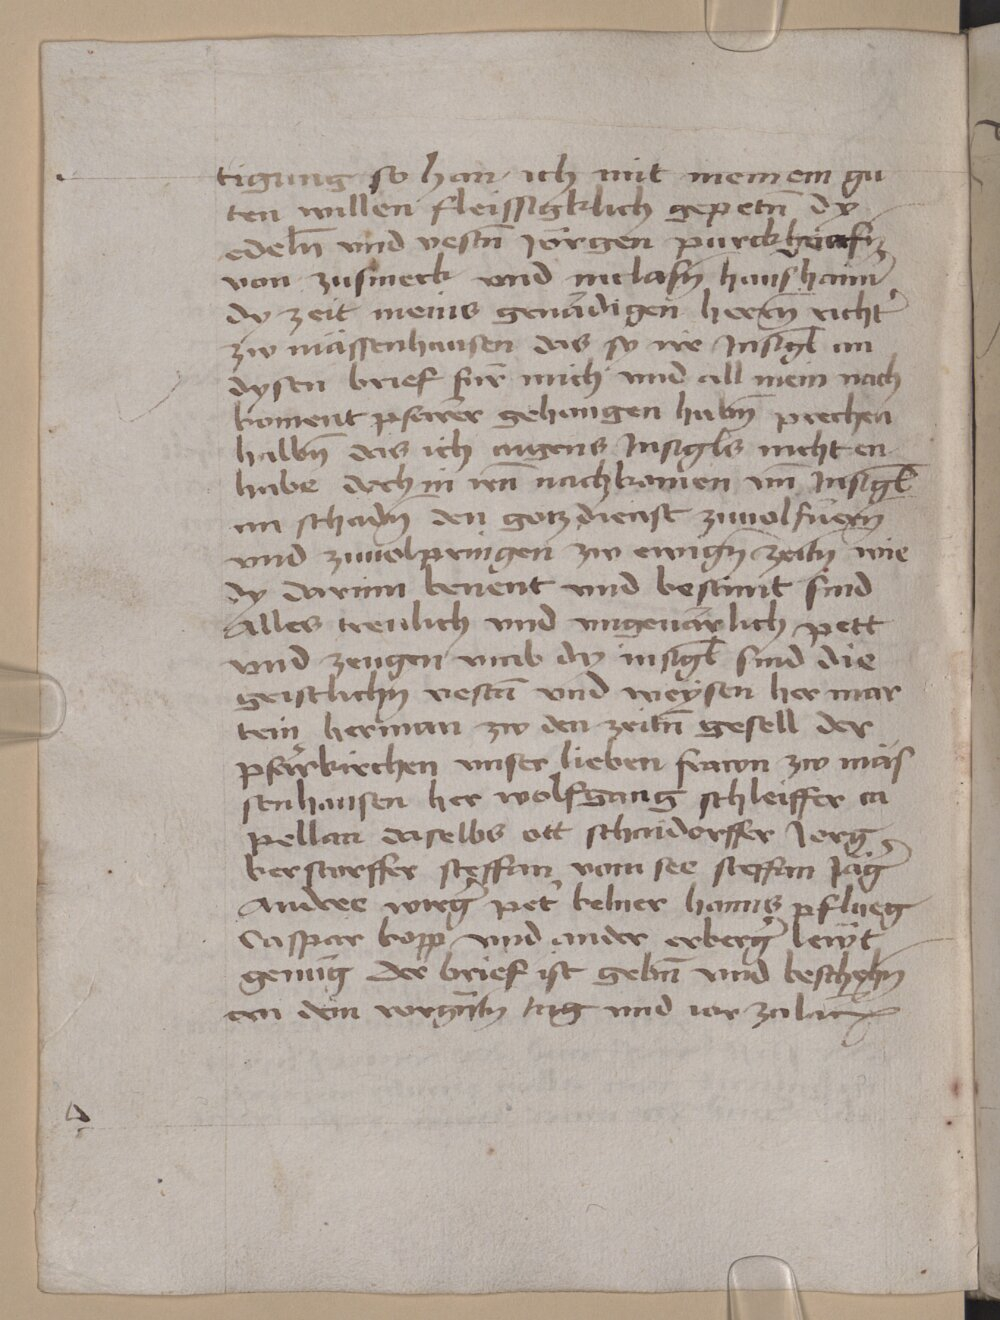 tigung so han ich mit meinem gu
ten willen fleissigklich gepetn̄ dy
edeln̄ vnd vestn̄ Jorgen purckhrafn
von zusmeck vnd niclasn haushaim̄
dy zeit meins genädigen herrn richt̓
zw mässenhausen das sy ire Insigl̄ an
dysen brief für mich vnd all mein nach
koment pfarrer gehangen habn̄ prechen
halbn̄ das ich aigens Insigls nicht en
habe doch in irn̄ nachkomen vn̄ Insigl̄
an schadn den gotzdienst zuuolfürn̄
vnd zuuolpringen zw ewign̄ zeitn wie
dy darinn benent vnd bestimt sind
Alles treulich vnd vngeuärlich pett
vnd zeugen vmb dy insigl̄ sind die
geistlichn vestn̄ vnd weysen her mar
tein herman zw den zeitn̄ gesell der
pfarrkirchen vnser lieben frawn zw mäs
senhausen her wolfgang schleiffer ca
pellan daselbs ott schaudorffer Jorg
berstorffer steffan vom see steffan Jäg̓
Andre wirg̓ pet̓ kelner hanns pflueg
Caspar kopp vnd ander erberg̓ lewt
genüg der brief ist gebn̄ vnd beschehn
an dem vorgn̄tn tag vnd iar zalac